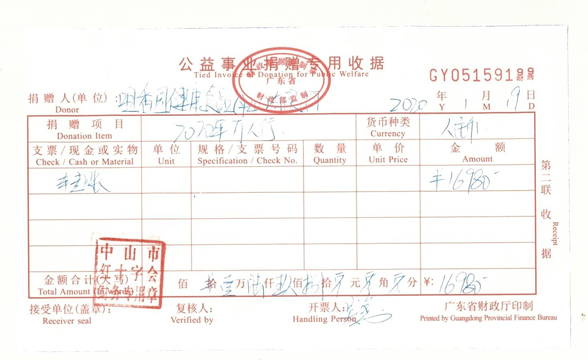 公益事业捐赠专用收据
Tied Invoice of Donation for Public Welfare
广东省
财政部监制
GY05159199
捐赠人(单位):
Donor
2020 年 1 月 19 日
Y M D
捐赠项目 2020年万人行 货币种类 人民币
Donation Item Currency
支票/现金或实物 单位 规格/支票号码 数量 单价 金额
Check / Cash or Material Unit Specification / Check No. Quantity Unit Price Amount
¥16980-
第二联 收据
Receipt
中山市
红十字会
金额合计(大写) 佰 壹万陆仟玖佰捌拾 元 角 分 ¥: 16980-
Total Amount (In words)
接受单位(盖章): 复核人: 开票人: 广东省财政厅印制
Receiver seal Verified by Handling Person Printed by Guangdong Provincial Finance Bureau